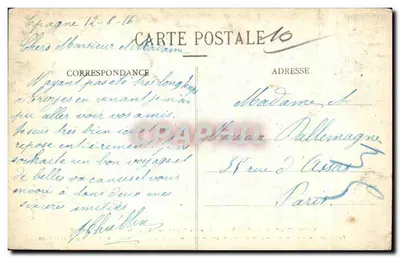 Espagne 12-8-16
CARTE POSTALE
10
Chers Monsieur et Madame
CORRESPONDANCE
ADRESSE
N'ayant pas été très longtemps
à Troyes en venant je n'ai
pu aller voir vos amis.
Je suis très bien
repose entièrement
souhaite un bon voyage et
de belles vacances et vous
envoie à tous deux mes
sincères amitiés
Madame
Dallemagne
58 rue d'Assas
Paris